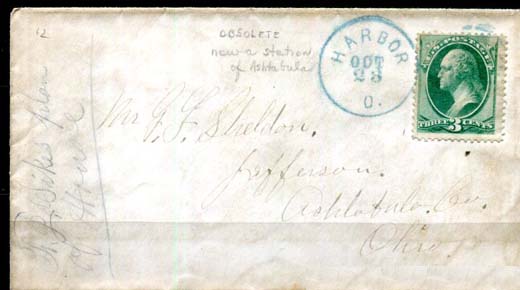 12
OBSOLETE
now a station
of Ashtabula
HARBOR
OCT
23
O.
U.S. POSTAGE
THREE 3 CENTS
Mr. F. Sheldon.
Jefferson.
Ashtabula. Co.
Ohio.
Sikes plan
of House